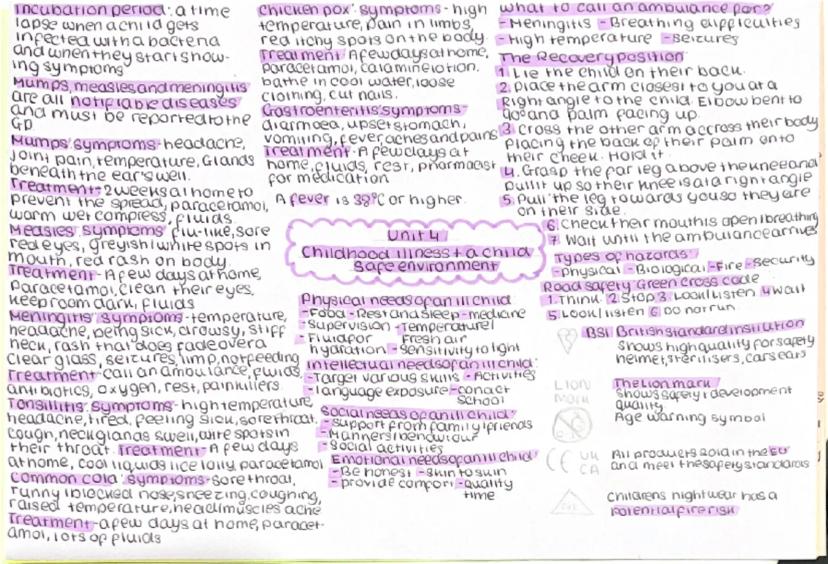 Incubation period: a time
lapse when a child gets
infected with a bacteria
and when they start show-
ing symptoms
Mumps, measles and meningitis
are all notifiable diseases
and must be reported to the
GP
Mumps symptoms - headache,
joint pain, temperature, Glands
beneath the ear swell.
Treatment - 2 weeks at home to
prevent the spread, paracetamol,
warm wet compress, fluids
Measles symptoms flu-like, sore
red eyes, greyish white spots in
mouth, red rash on body
Treatment - A few days at home,
Paracetamol, clean their eyes,
keep room dark, fluids
Meningitis symptoms - temperature,
headache, being sick, drowsy, stiff
neck, rash that does fade over a
clear glass, seizures, limp, not feeding
Treatment - call an ambulance, fluids
antibiotics, oxygen, rest, painkillers
Tonsillitis symptoms - high temperature,
headache, tired, feeling sick, sore throat,
cough, neck glands swell, white spots in
their throat. Treatment - A few days
at home, cool liquids ice lolly paracetamol
Common cold symptoms - sore throat,
runny/blocked nose, sneezing, coughing,
raised temperature, head/muscles ache
Treatment - a few days at home, paracet-
amol, lots of fluids
Chicken pox symptoms - high
temperature, pain in limbs,
red itchy spots on the body
Treatment A few days at home,
paracetamol, calamine lotion,
bathe in cool water, loose
clothing, cut nails.
Gastroenteritis symptoms -
diarrhoea, upset stomach,
vomiting, fever, aches and pains
Treatment - A few days at
home, fluids, rest, pharmacist
for medication
A fever is 38°C or higher.
Unit 4
Childhood illness + a child
safe environment
Physical needs of an ill child
- Food - Rest and sleep - medicine
- Supervision - Temperature/
- Fluid for Fresh air
hydration - sensitivity to light
Intellectual needs of an ill child:
- Target various skills - Activities
- language exposure - contact
school
Social needs of an ill child:
- support from family/friends
- Manners/behaviour
- Social activities
Emotional needs of an ill child
- Be honest - skin to skin
- provide comfort - quality
time
What to call an ambulance for?
- Meningitis - Breathing difficulties
- High temperature - Seizures
The Recovery position
1. Lie the child on their back.
2. Place the arm closest to you at a
Right angle to the child. Elbow bent to
90° and palm facing up.
3. Cross the other arm accross their body
placing the back of their palm onto
their cheek. Hold it.
4. Grasp the far leg above the knee and
pull it up so their knee is at a right angle
5. Pull the leg towards you so they are
on their side.
6. Check their mouth is open/breathing
7. Wait until the ambulance arrives
Types of hazards:
- Physical - Biological - Fire - Security
Road safety Green cross code
1. Think 2. Stop 3. Look/Listen 4. Wait
5. Look/listen 6. Do not run
BSI British standard institution
Shows high quality for safety
helmet, sterilisers, car seats
LION
MARK
The lion mark
Shows safety + development
quality
Age warning symbol
CE UK
CA
All products sold in the EU
and meet the safety standards
Childrens nightwear has a
potential fire risk